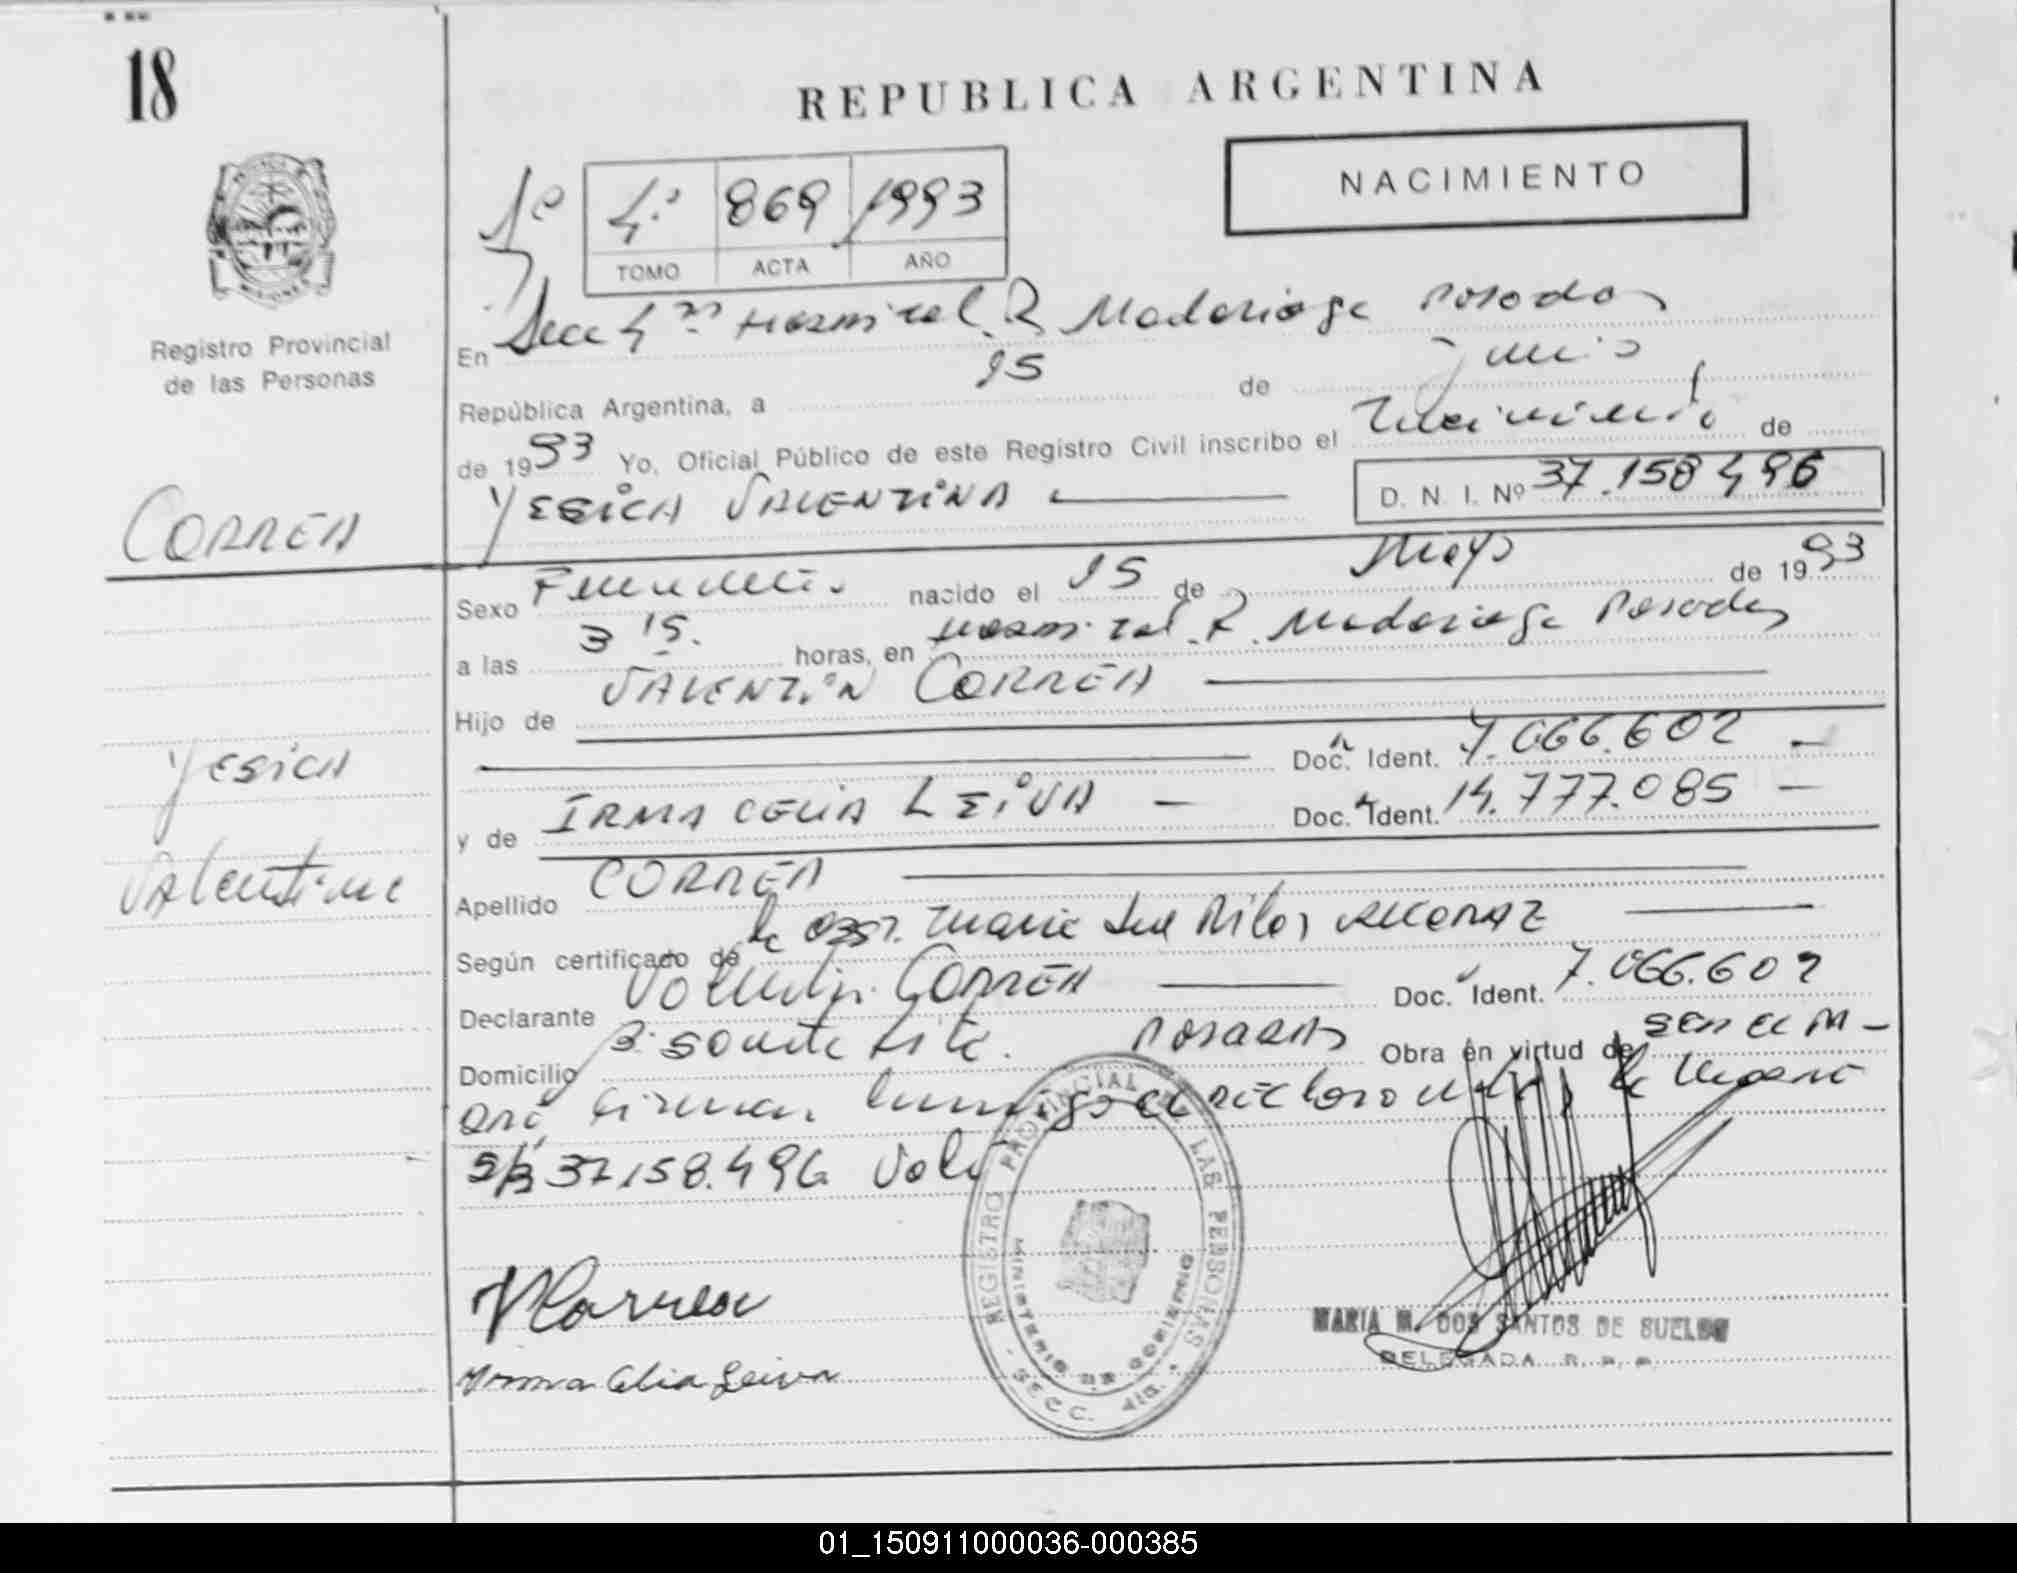 18
REPUBLICA ARGENTINA
NACIMIENTO
1º 4º 869 1993
TOMO ACTA AÑO
Registro Provincial
de las Personas
En Secc 4ª Hospital R Madariaga Posadas
República Argentina, a 15 de junio
de 1993 Yo, Oficial Público de este Registro Civil inscribo el nacimiento de
YESICA VALENTINA D. N. I. Nº 37.158.496
CORREA
Sexo Femenino nacido el 15 de Mayo de 1993
a las 3 15. horas, en Hospital R. Madariaga Posadas
Hijo de VALENTIN CORREA
Doc. Ident. 7.066.602
y de IRMA CELIA LEIVA Doc. Ident. 14.777.085
YESICA
Valentina
Apellido CORREA
Según certificado de la obst. Maria
Declarante Valentin CORREA Doc. Ident. 7.066.602
Domicilio Posadas Obra en virtud de
firman conmigo el declarante y la
37.158.496 Vale
VCorrea
Yrma Celia Leiva
REGISTRO PROVINCIAL DE LAS PERSONAS
MINISTERIO DE GOBIERNO
SECC. 4ta.
MARIA M. DOS SANTOS DE SUELDO
DELEGADA R. P. P.
01_150911000036-000385